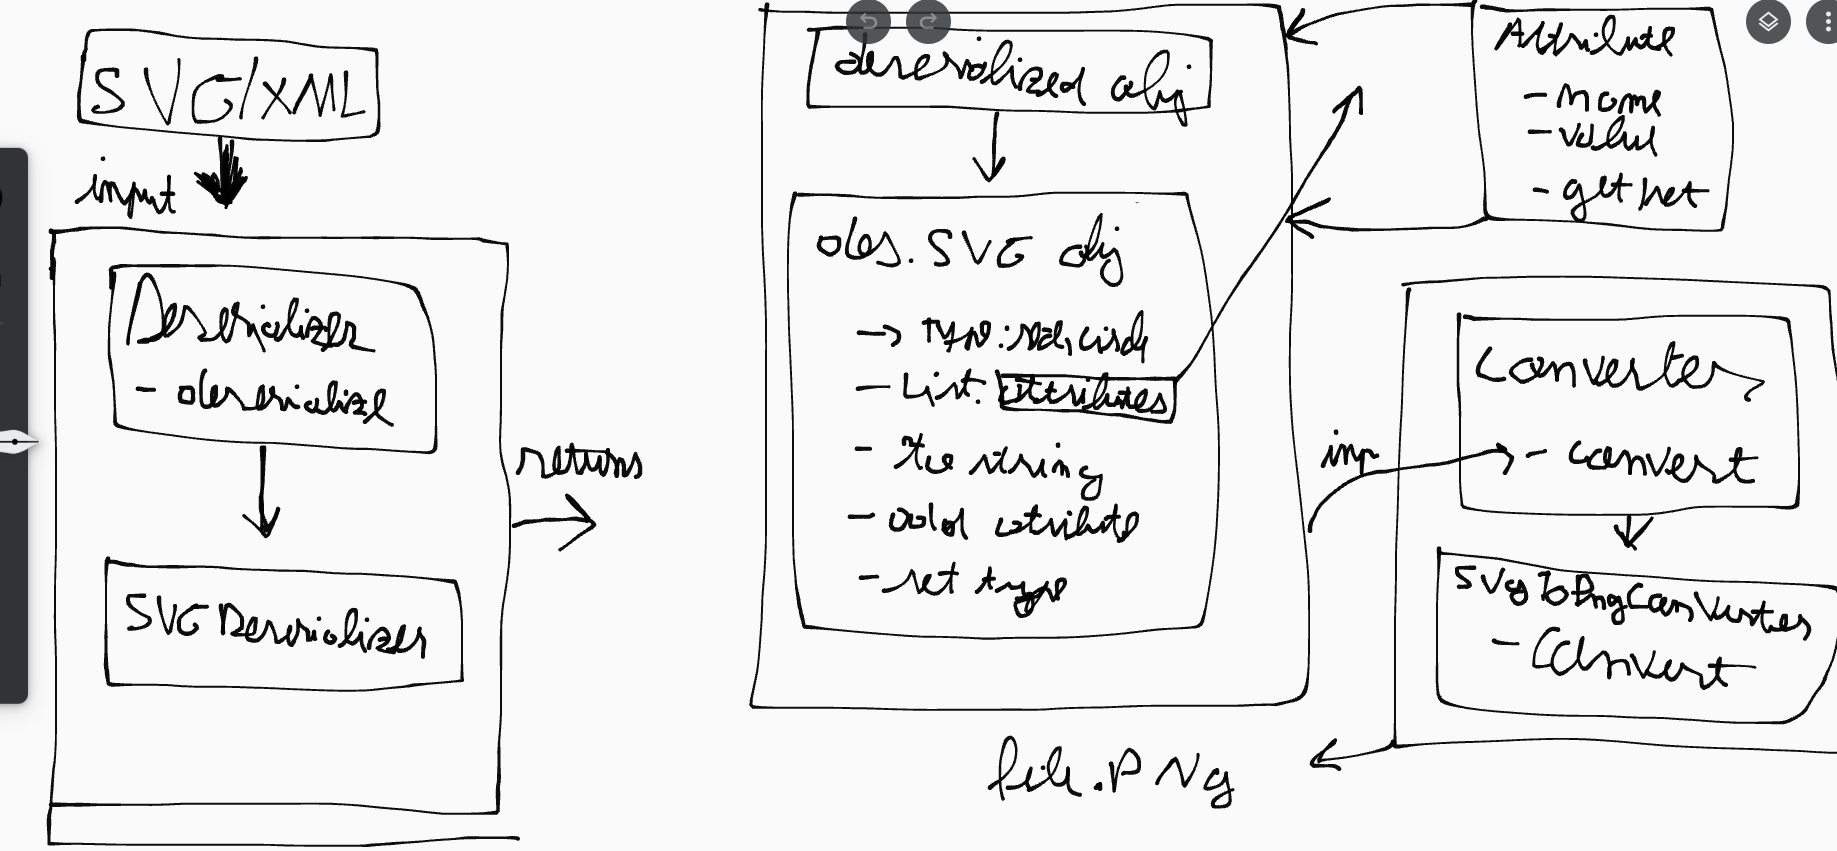 SVG/XML
input
Deserializer
- deserialize
SVG Deserializer
returns
deserialized obj
des. SVG obj
→ type: rect, circle
- List: attributes
- to string
- add attribute
- set type
Attribute
- name
- value
- get/set
inp
Converter
- convert
SVgToPngConverter
- Convert
file.PNg